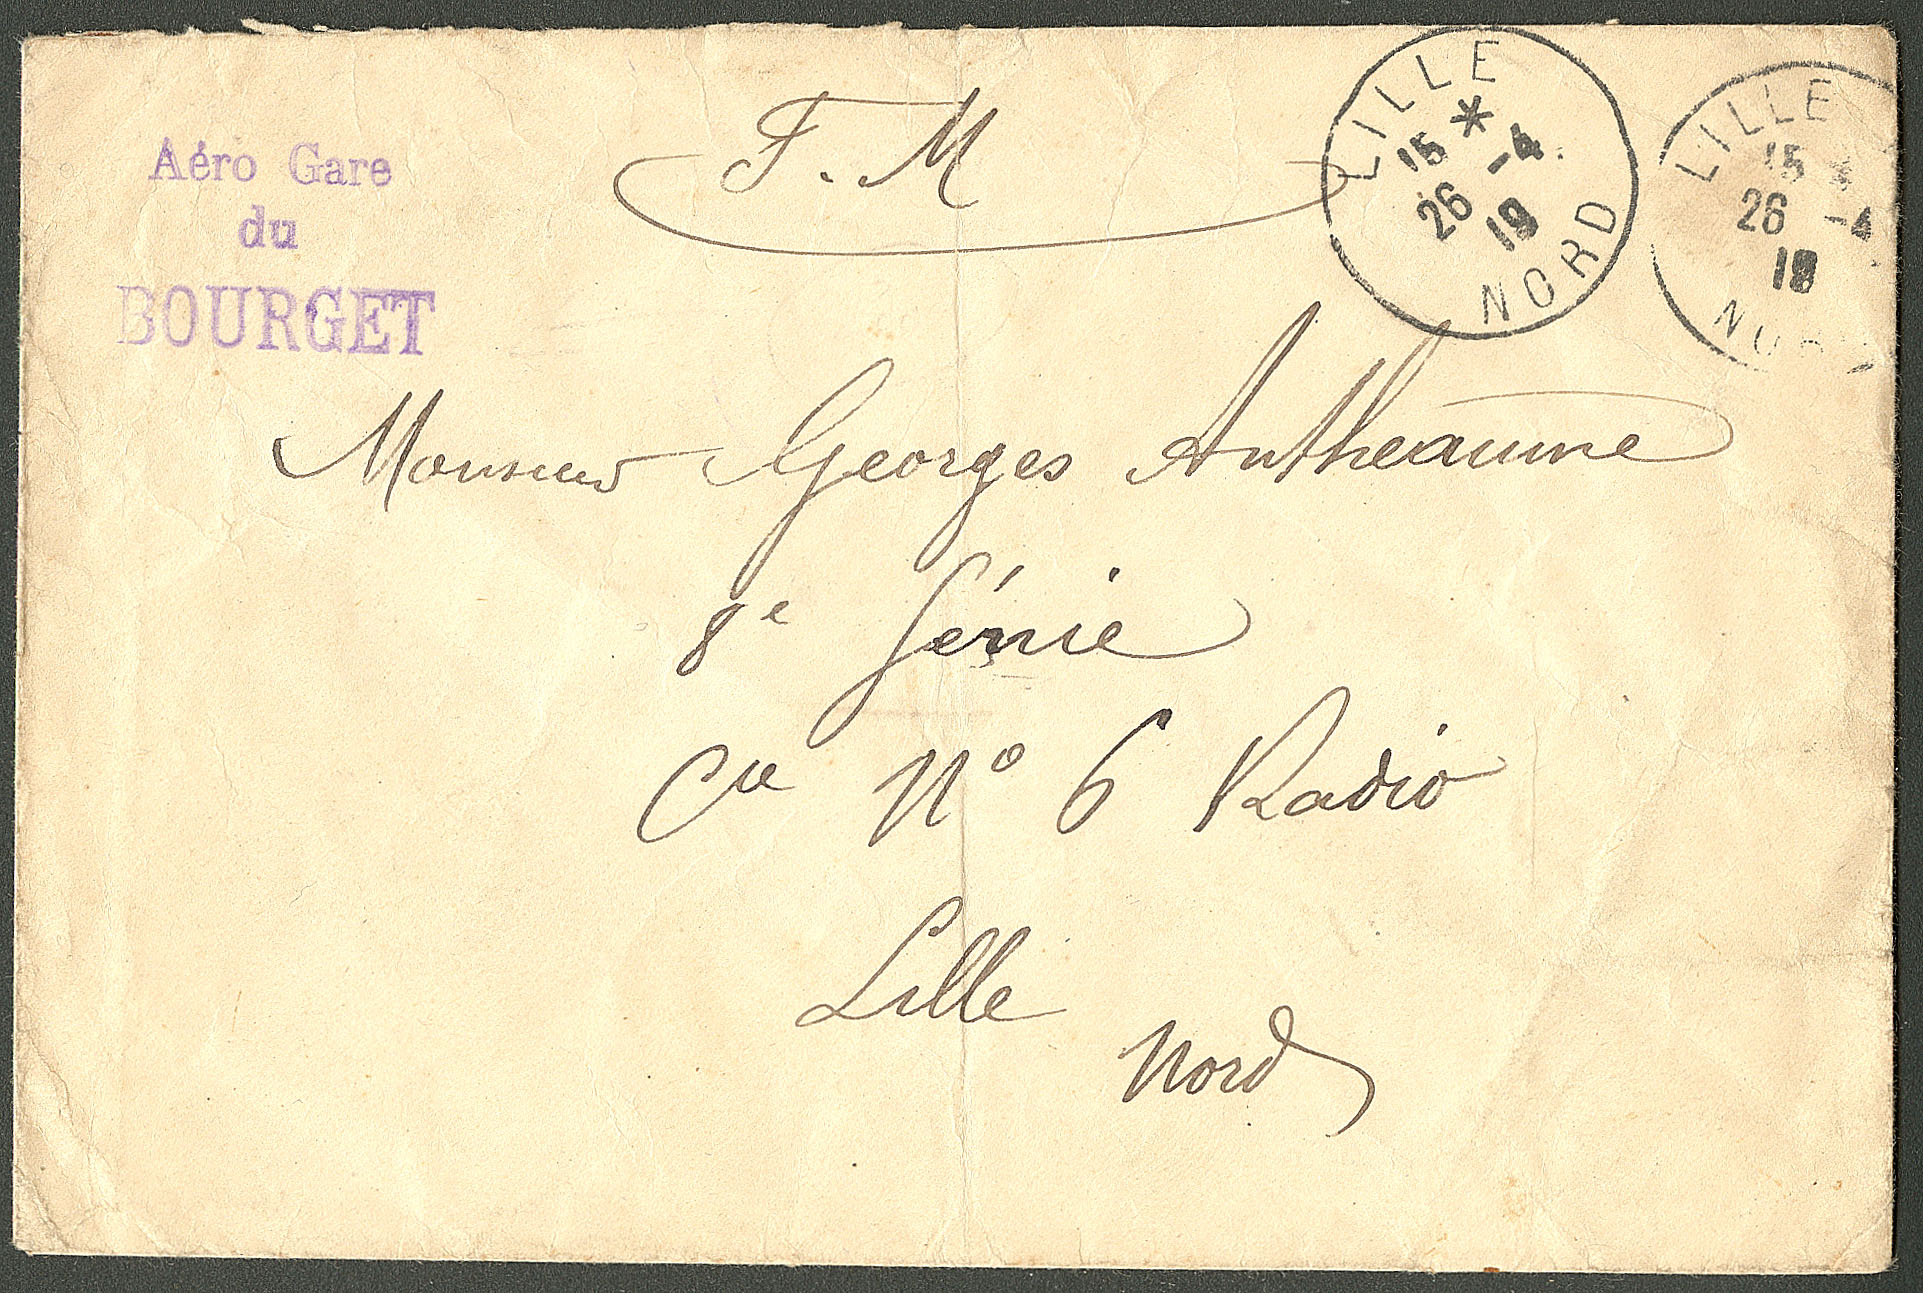 Aéro Gare
du
BOURGET
F. M
LILLE
15 *
26 -4
19
NORD
LILLE
15 *
26 -4
19
NORD
Monsieur Georges Antheaume
8e Génie
Cie No 6 Radio
Lille
Nord